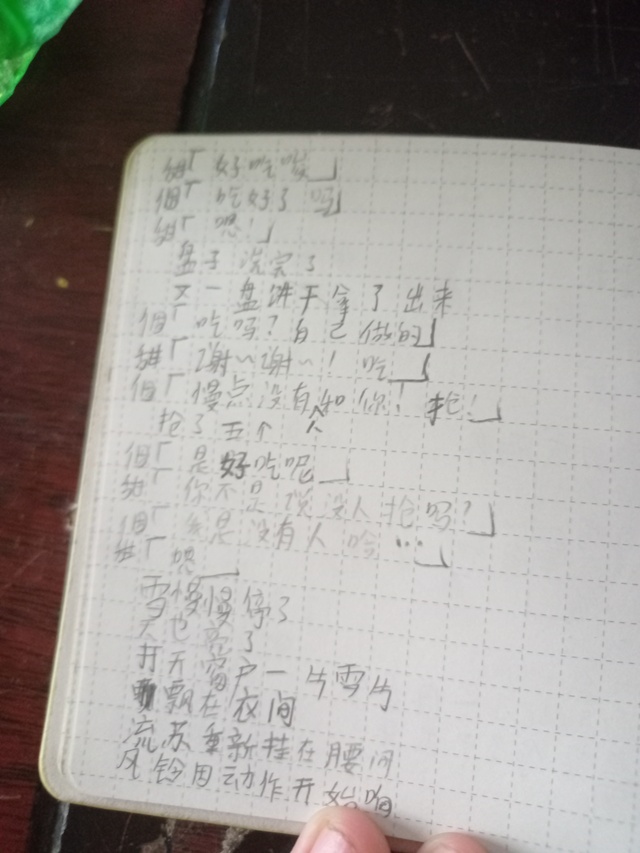 甜「好吃哎」
佃「吃好了吗」
甜「嗯!」
盘子洗完了
又一盘饼干拿了出来
佃「吃吗?自己做的」
甜「谢~谢~!吃」
佃「慢点没有人和你!抢!」
抢了五个
佃「是好吃呢」
甜「你不是说没人抢吗?」
佃「是没有人哈…」
甜「嗯」
雪慢慢停了
天也亮了
打开窗户一片雪片
飘在衣间
流苏重新挂在腰间
风铃因动作开始响